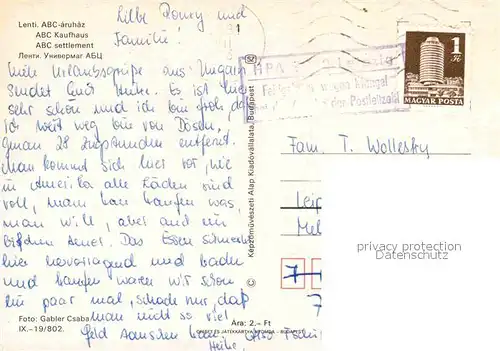 Lenti. ABC-áruház
ABC Kaufhaus
ABC settlement
Ленти. Универмаг АБЦ
Liebe Romry und
Familie!
Viele Urlaubsgrüße aus Ungarn
sendet Euch Heike. Es ist hier
sehr schön und ich bin froh, daß
ich weit weg bin von Dösen,
genau 28 Zugstunden entfernt.
Man kommt sich hier vor, wie
in Amerika alle Läden sind
voll, man kann kaufen was
man will, aber auch ein
bißchen teurer. Das Essen schmeckt
hier hervorragend und baden
und kaufen waren wir schon
ein paar mal, schade nur, daß
man nicht so viel
Geld tauschen kann. Also Tschüß
Heike.
Foto: Gabler Csaba
IX.-19/802.
Ára: 2.- Ft
OFFSET ÉS JÁTÉKKÁRTYA NYOMDA - BUDAPEST
Képzőművészeti Alap Kiadóvállalata, Budapest
HPA
wegen Mangel
der Postleitzahl
1 Ft
MAGYAR POSTA
Fam. T. Wollesky
Leip
7
7
privacy protection
Datenschutz